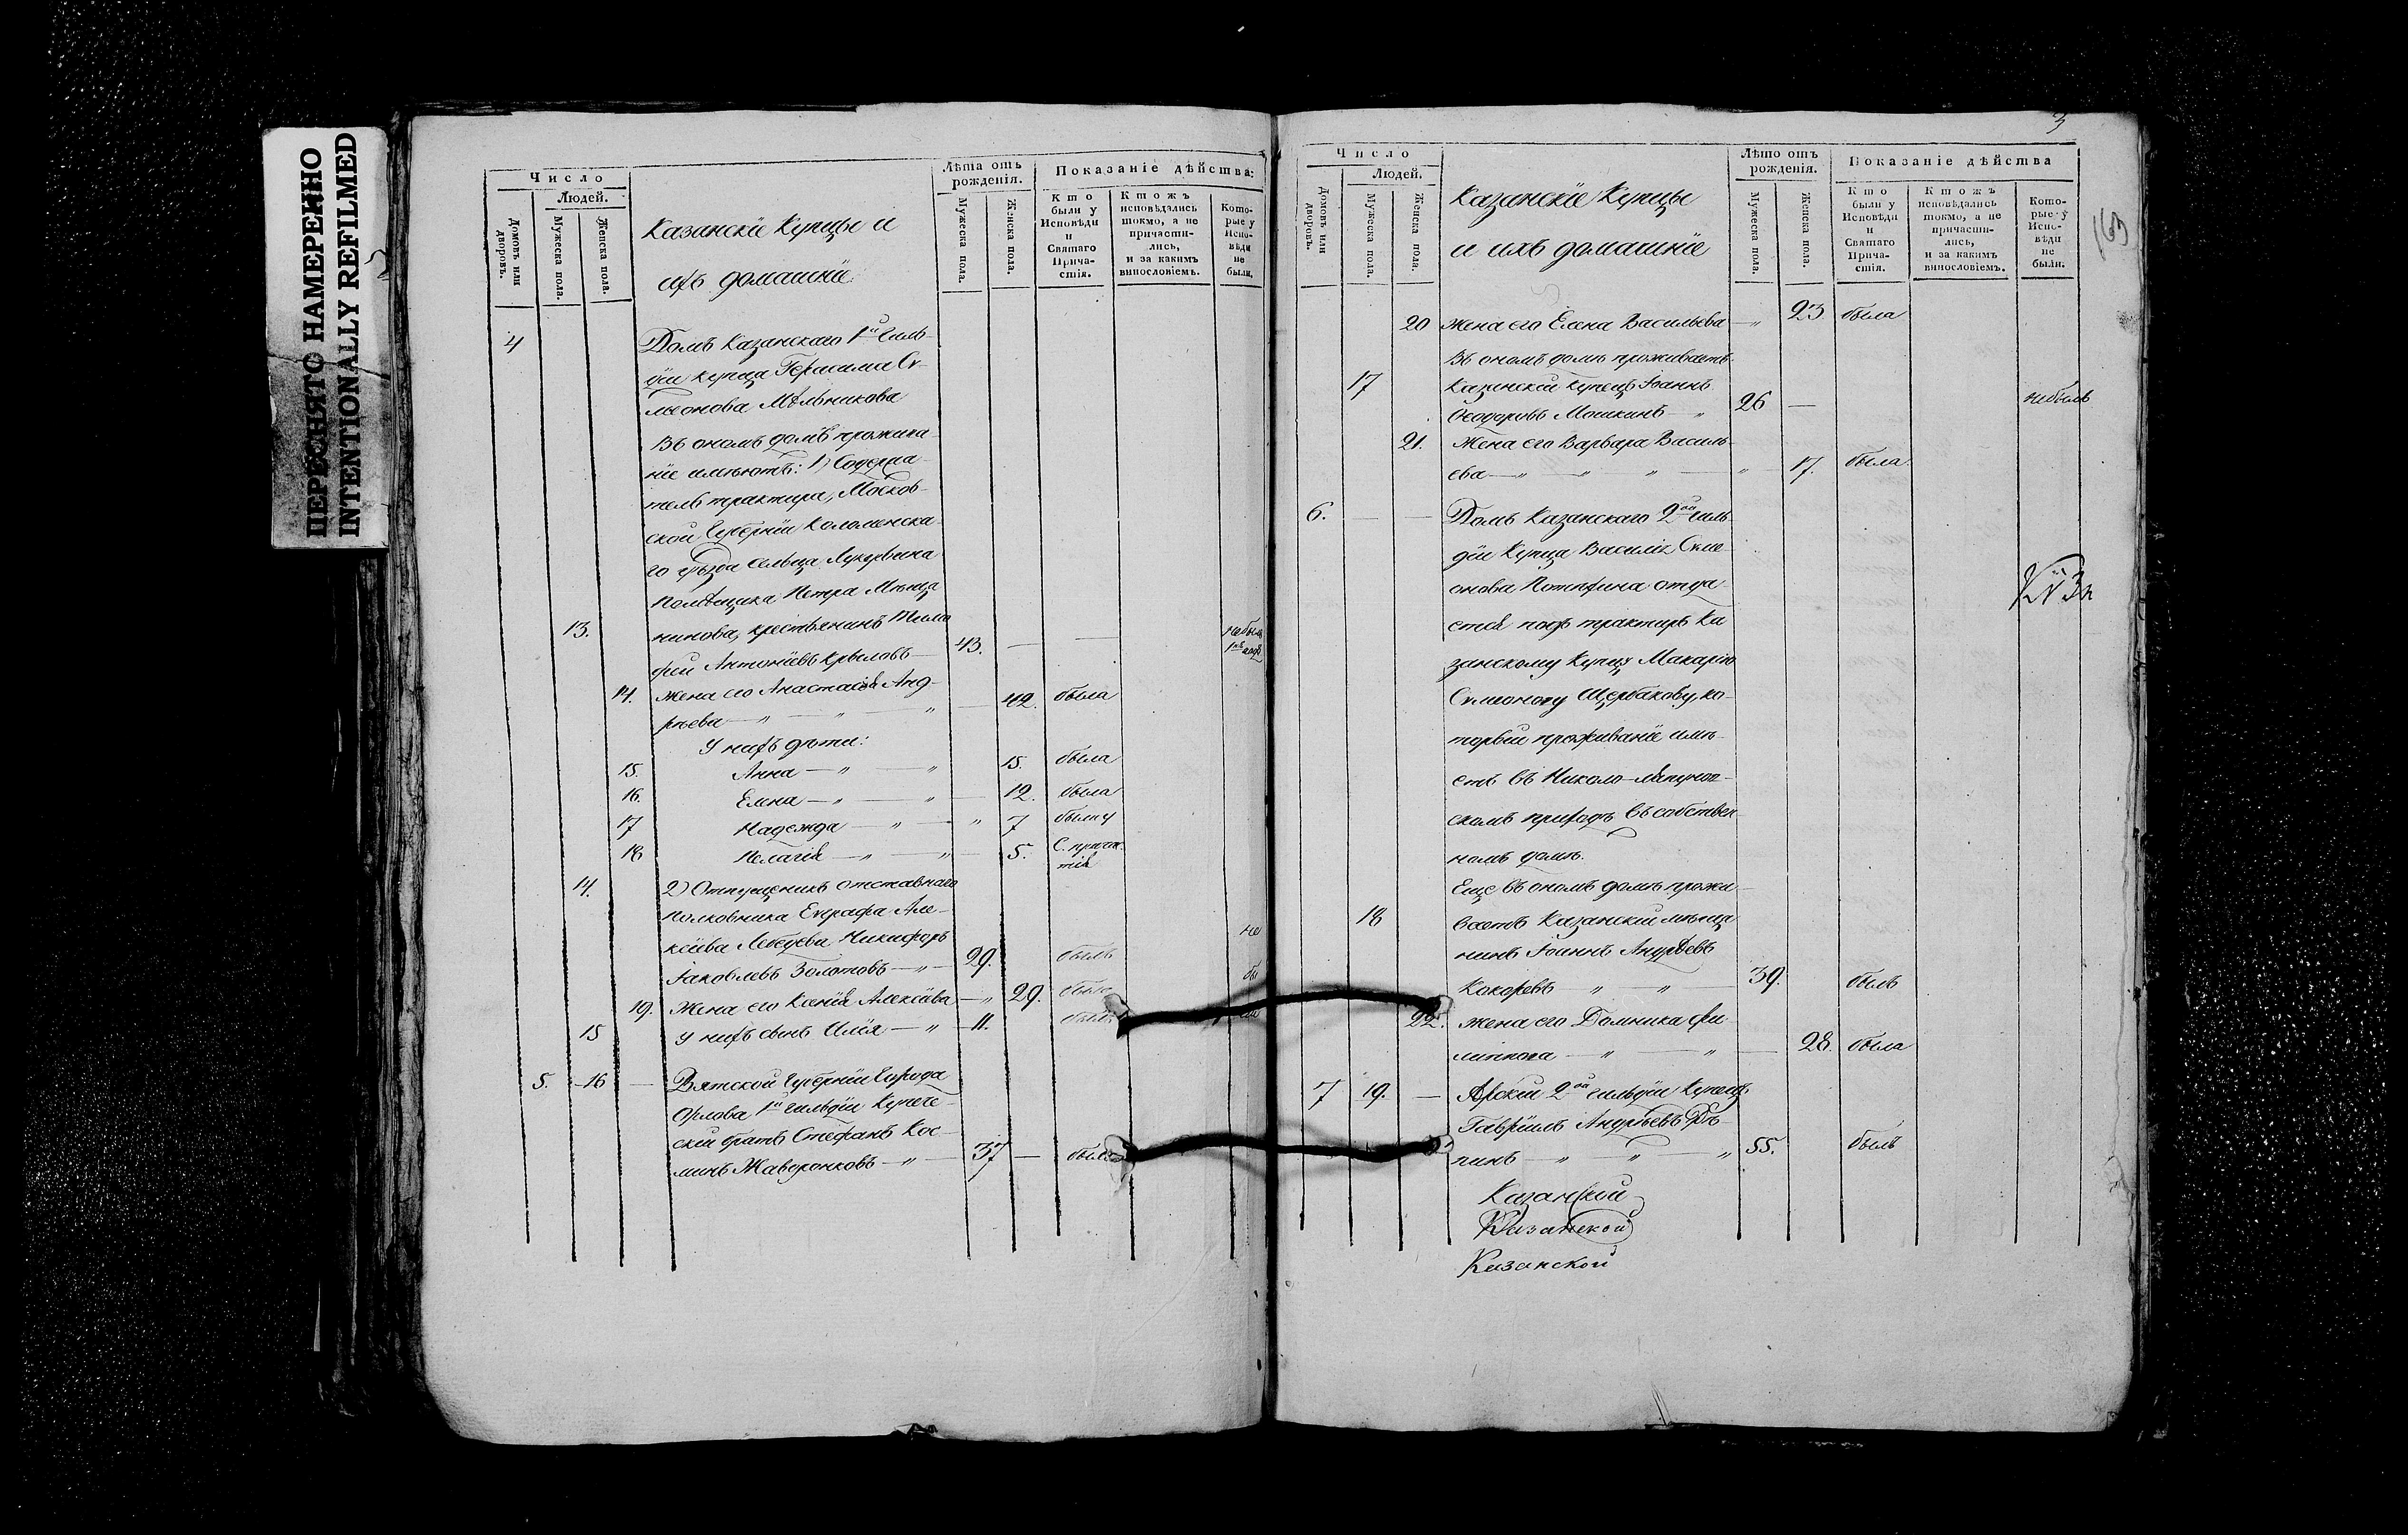 ПЕРЕСНЯТО НАМЕРЕННО
INTENTIONALLY REFILMED
Число
Людей.
Домовъ или дворовъ.
Мужеска пола.
Женска пола.
Казанскіе Купцы и
ихъ домашніе
Лѣта отъ рожденія.
Мужеска пола.
Женска пола.
Показаніе дѣйства:
Кто были у Исповѣди и Святаго Прича-стія.
Ктожъ исповѣдались токмо, а не причасти-лись, и за какимъ винословіемъ.
Кото-рые у Испо-вѣди не были.
4 Домъ Казанскаго 1й Гиль-
діи купца Герасима Си-
меонова Мѣльникова
Въ ономъ домѣ прожива-
ніе имѣютъ: 1) Содержа-
тель трактира, Москов-
ской Губерніи Коломенска-
го уѣзда сельца
Помѣщика Петра
13. нинова, крестьянинъ Тимо
фей Антоніевъ Крыловъ — 43. — — не былъ
14. Жена его Анастасія Анд-
рѣева — „ — „ — „ — 42. была
У нихъ дѣти:
15. Анна — „ — „ 15. была
16. Елена — „ — „ — 12. была
17 Надежда — „ — „ 7 были у
18 Пелагія — „ — „ — 5. С. причас-
тія
14. 2) Отпущеникъ отставнаго
Полковника Евграфа Але-
ксіева Лебедева Никифоръ не
Іаковлевъ Золотовъ — „ — 29. былъ
19. Жена его Ксенія Алексіева — „ 29. была бы
15 У нихъ сынъ Илія — „ — 11. былъ ли
5. — 16 — Вятской Губерніи Города
Орлова 1й гильдіи Купече-
скій братъ Стефанъ Кос-
минъ Жаворонковъ — „ — 37 — былъ
3
163
Число
Людей.
Домовъ или дворовъ.
Мужеска пола.
Женска пола.
Казанскіе Купцы
и ихъ домашніе
Лѣто отъ рожденія.
Мужеска пола.
Женска пола.
Показаніе дѣйства
Кто были у Исповѣди и Святаго Прича-стія.
Ктожъ исповѣдались токмо, а не причасти-лись, и за какимъ винословіемъ.
Кото-рые у Испо-вѣди не были.
20 Жена его Елена Васильева — „ 23. была
Въ ономъ домѣ проживаетъ
17 Казанскій Купецъ Іоаннъ
Ѳеодоровъ Мошкинъ — „ 26 — не былъ
21. Жена его Варвара Василь-
ева — „ — „ — „ — „ 17. была
6. — — Домъ Казанскаго 2ой гиль-
діи Купца Василія Симе-
онова Потпѣина отда-
ется подъ трактиръ Ка
занскому Купцу Макарію
Симеонову Щербакову, ко-
торый проживаніе имѣ-
етъ въ Николо-Ляпунов-
скомъ приходѣ въ собствен-
номъ домѣ.
Еще въ ономъ домѣ прожи-
18 ваетъ Казанскій мѣща
нинъ Іоаннъ Андрѣевъ
Кокоревъ „ „ — 39. былъ
22. Жена его Домника Фи-
липпова — „ — „ — 28. была
7 19. — Арскій 2ой гильдіи Купецъ
Гавріилъ Андрѣевъ Рѣ-
пинъ — „ — „ — „ 55. былъ
Казанской
Казанской
Казанской